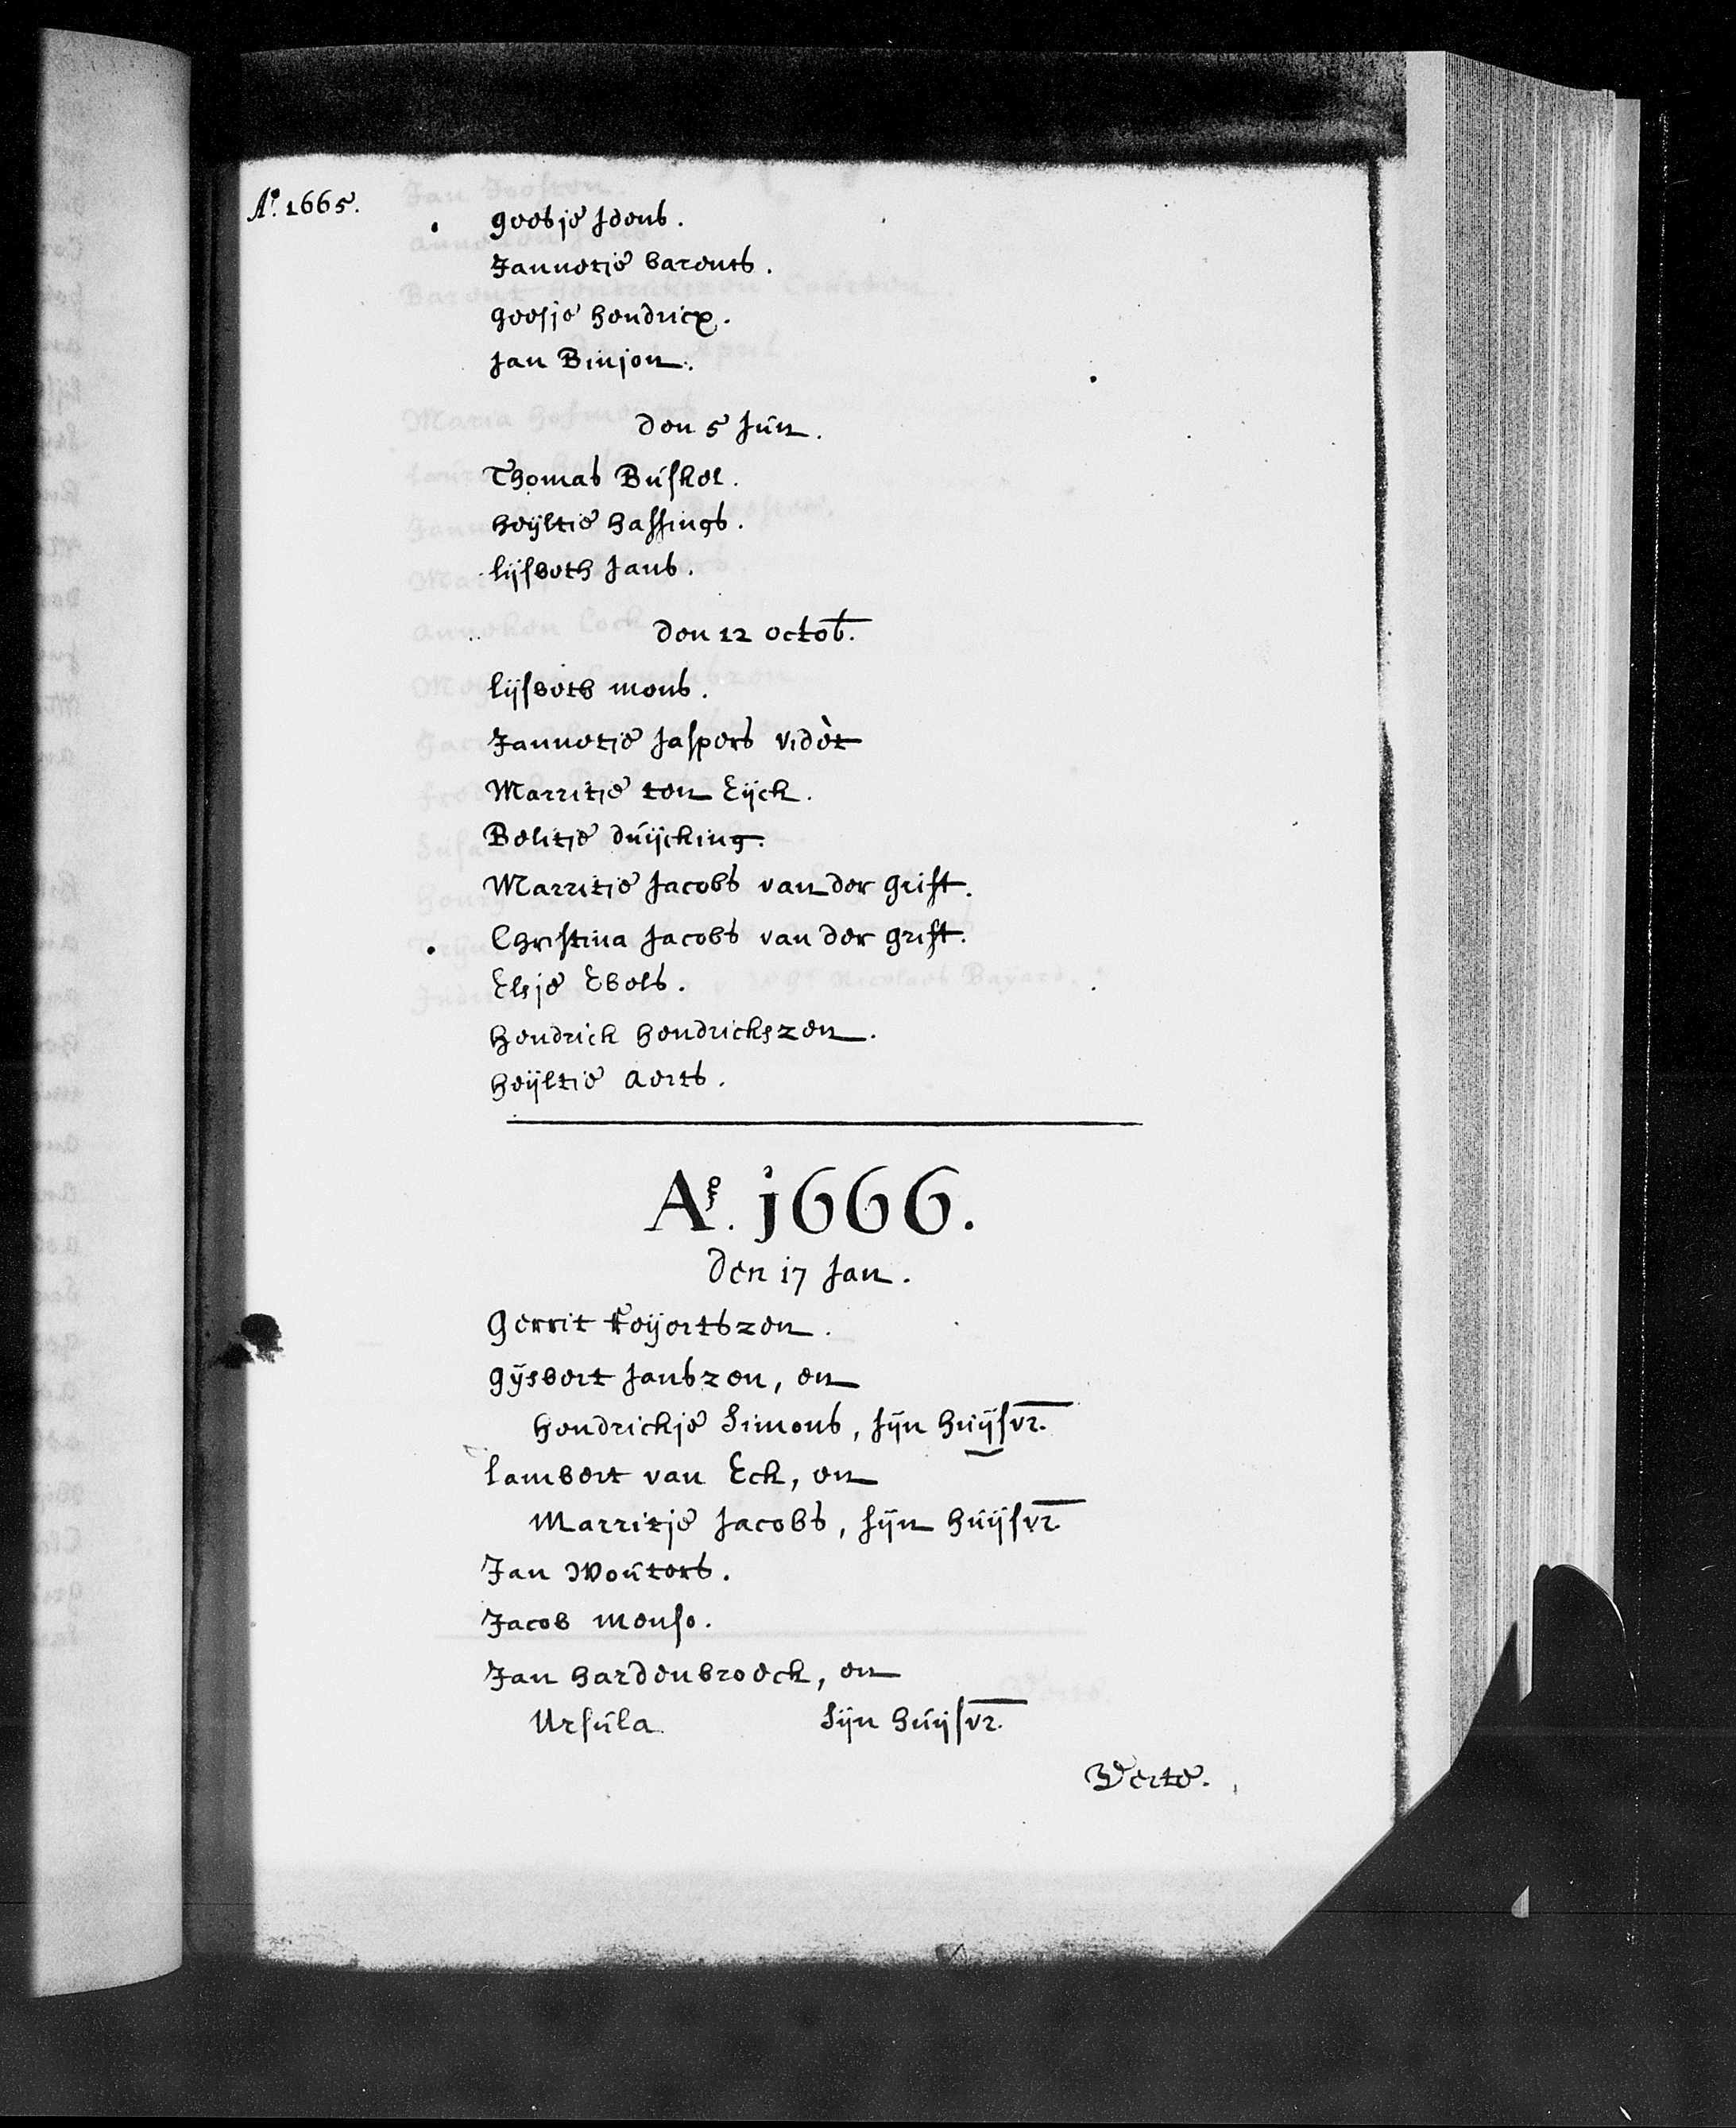 Aº. 1665.
geesje Idens.
Jannetie barents.
geesje hendricx.
Jan Binjon.
den 5 Jún.
Thomas Búskel.
heÿltie hassings.
lijsbeth Jans.
den 12 octob.
lijsbeth mens.
Jannetie Jaspers videt
Marritie ten Eijck.
Belitje dúijcking.
Marritie Jacobs van der grift.
Christina Jacobs van der grift.
Elsje Ebels.
Hendrick Hendrickszen.
heÿltie aerts.
Aº. j666.
Den 17 Jan.
Gerrit
gÿsbert Janszen, en
Hendrickje Simons, sÿn húÿsvr.
Lambert van Eck, en
Marritje Jacobs, sÿn húÿsvr.
Jan Woúters.
Jacob mense.
Jan hardenbroeck, en
Ursúla sijn húijsvr.
Verte.